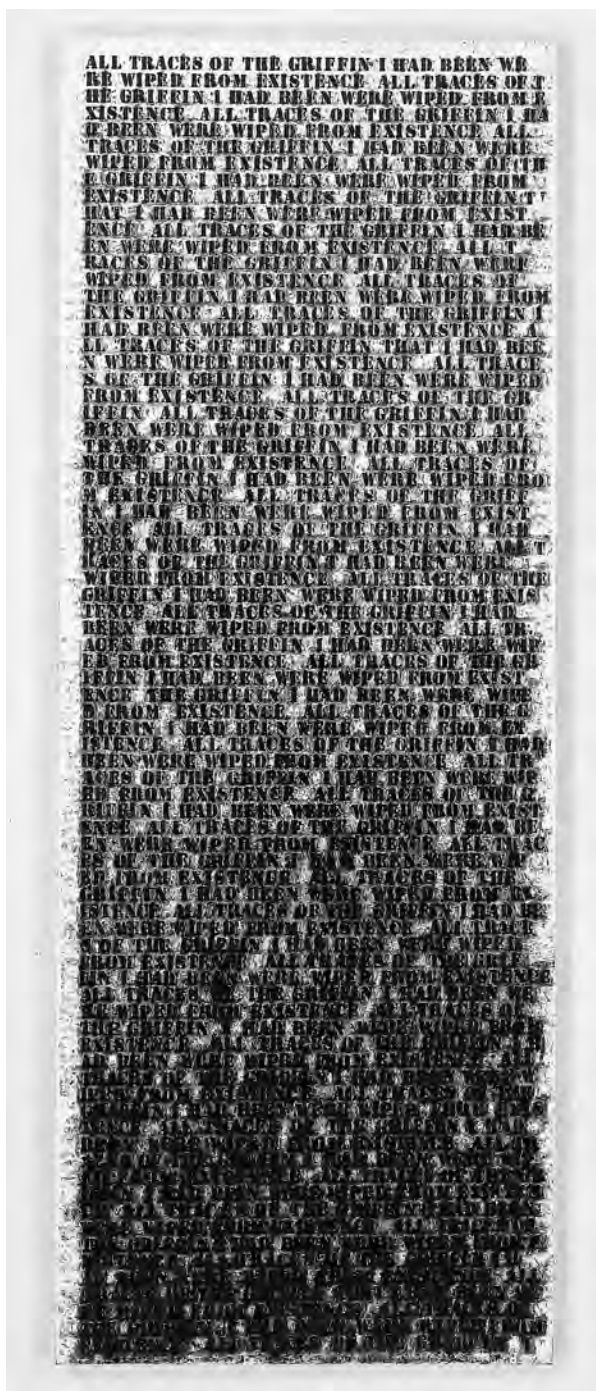 ALL TRACES OF THE GRIFFIN I HAD BEEN WE
RE WIPED FROM EXISTENCE ALL TRACES OF T
HE GRIFFIN I HAD BEEN WERE WIPED FROM E
XISTENCE ALL TRACES OF THE GRIFFIN I HA
D BEEN WERE WIPED FROM EXISTENCE ALL
TRACES OF THE GRIFFIN I HAD BEEN WERE
WIPED FROM EXISTENCE ALL TRACES OF TH
E GRIFFIN I HAD BEEN WERE WIPED FROM
EXISTENCE ALL TRACES OF THE GRIFFIN T
HAT I HAD BEEN WERE WIPED FROM EXIST
ENCE ALL TRACES OF THE GRIFFIN I HAD BE
EN WERE WIPED FROM EXISTENCE ALL T
RACES OF THE GRIFFIN I HAD BEEN WERE
WIPED FROM EXISTENCE ALL TRACES OF
THE GRIFFIN I HAD BEEN WERE WIPED FROM
EXISTENCE ALL TRACES OF THE GRIFFIN I
HAD BEEN WERE WIPED FROM EXISTENCE A
LL TRACES OF THE GRIFFIN THAT I HAD BEE
N WERE WIPED FROM EXISTENCE ALL TRACE
S OF THE GRIFFIN I HAD BEEN WERE WIPED
FROM EXISTENCE ALL TRACES OF THE GR
IFFIN ALL TRACES OF THE GRIFFIN I HAD
BEEN WERE WIPED FROM EXISTENCE ALL
TRACES OF THE GRIFFIN I HAD BEEN WERE
WIPED FROM EXISTENCE ALL TRACES OF
THE GRIFFIN I HAD BEEN WERE WIPED FRO
M EXISTENCE ALL TRACES OF THE GRIFF
IN I HAD BEEN WERE WIPED FROM EXIST
ENCE ALL TRACES OF THE GRIFFIN I HAD
BEEN WERE WIPED FROM EXISTENCE ALL T
RACES OF THE GRIFFIN I HAD BEEN WERE
WIPED FROM EXISTENCE ALL TRACES OF THE
GRIFFIN I HAD BEEN WERE WIPED FROM EXIS
TENCE ALL TRACES OF THE GRIFFIN I HAD
BEEN WERE WIPED FROM EXISTENCE ALL TR
ACES OF THE GRIFFIN I HAD BEEN WERE WIP
ED FROM EXISTENCE ALL TRACES OF THE GR
IFFIN I HAD BEEN WERE WIPED FROM EXIST
ENCE THE GRIFFIN I HAD BEEN WERE WIPE
D FROM EXISTENCE ALL TRACES OF THE G
RIFFIN I HAD BEEN WERE WIPED FROM EX
ISTENCE ALL TRACES OF THE GRIFFIN I HAD
BEEN WERE WIPED FROM EXISTENCE ALL TR
ACES OF THE GRIFFIN I HAD BEEN WERE WIP
ED FROM EXISTENCE ALL TRACES OF THE G
RIFFIN I HAD BEEN WERE WIPED FROM EXIST
ENCE ALL TRACES OF THE GRIFFIN I HAD BE
EN WERE WIPED FROM EXISTENCE ALL TRAC
ES OF THE GRIFFIN I HAD BEEN WERE WIP
ED FROM EXISTENCE ALL TRACES OF THE
GRIFFIN I HAD BEEN WERE WIPED FROM EX
ISTENCE ALL TRACES OF THE GRIFFIN I HAD BE
EN WERE WIPED FROM EXISTENCE ALL TRACE
S OF THE GRIFFIN I HAD BEEN WERE WIPED
FROM EXISTENCE ALL TRACES OF THE GRIFF
IN I HAD BEEN WERE WIPED FROM EXISTENCE
ALL TRACES OF THE GRIFFIN I HAD BEEN WE
RE WIPED FROM EXISTENCE ALL TRACES OF
THE GRIFFIN I HAD BEEN WERE WIPED FROM
EXISTENCE ALL TRACES OF THE GRIFFIN I H
AD BEEN WERE WIPED FROM EXISTENCE ALL